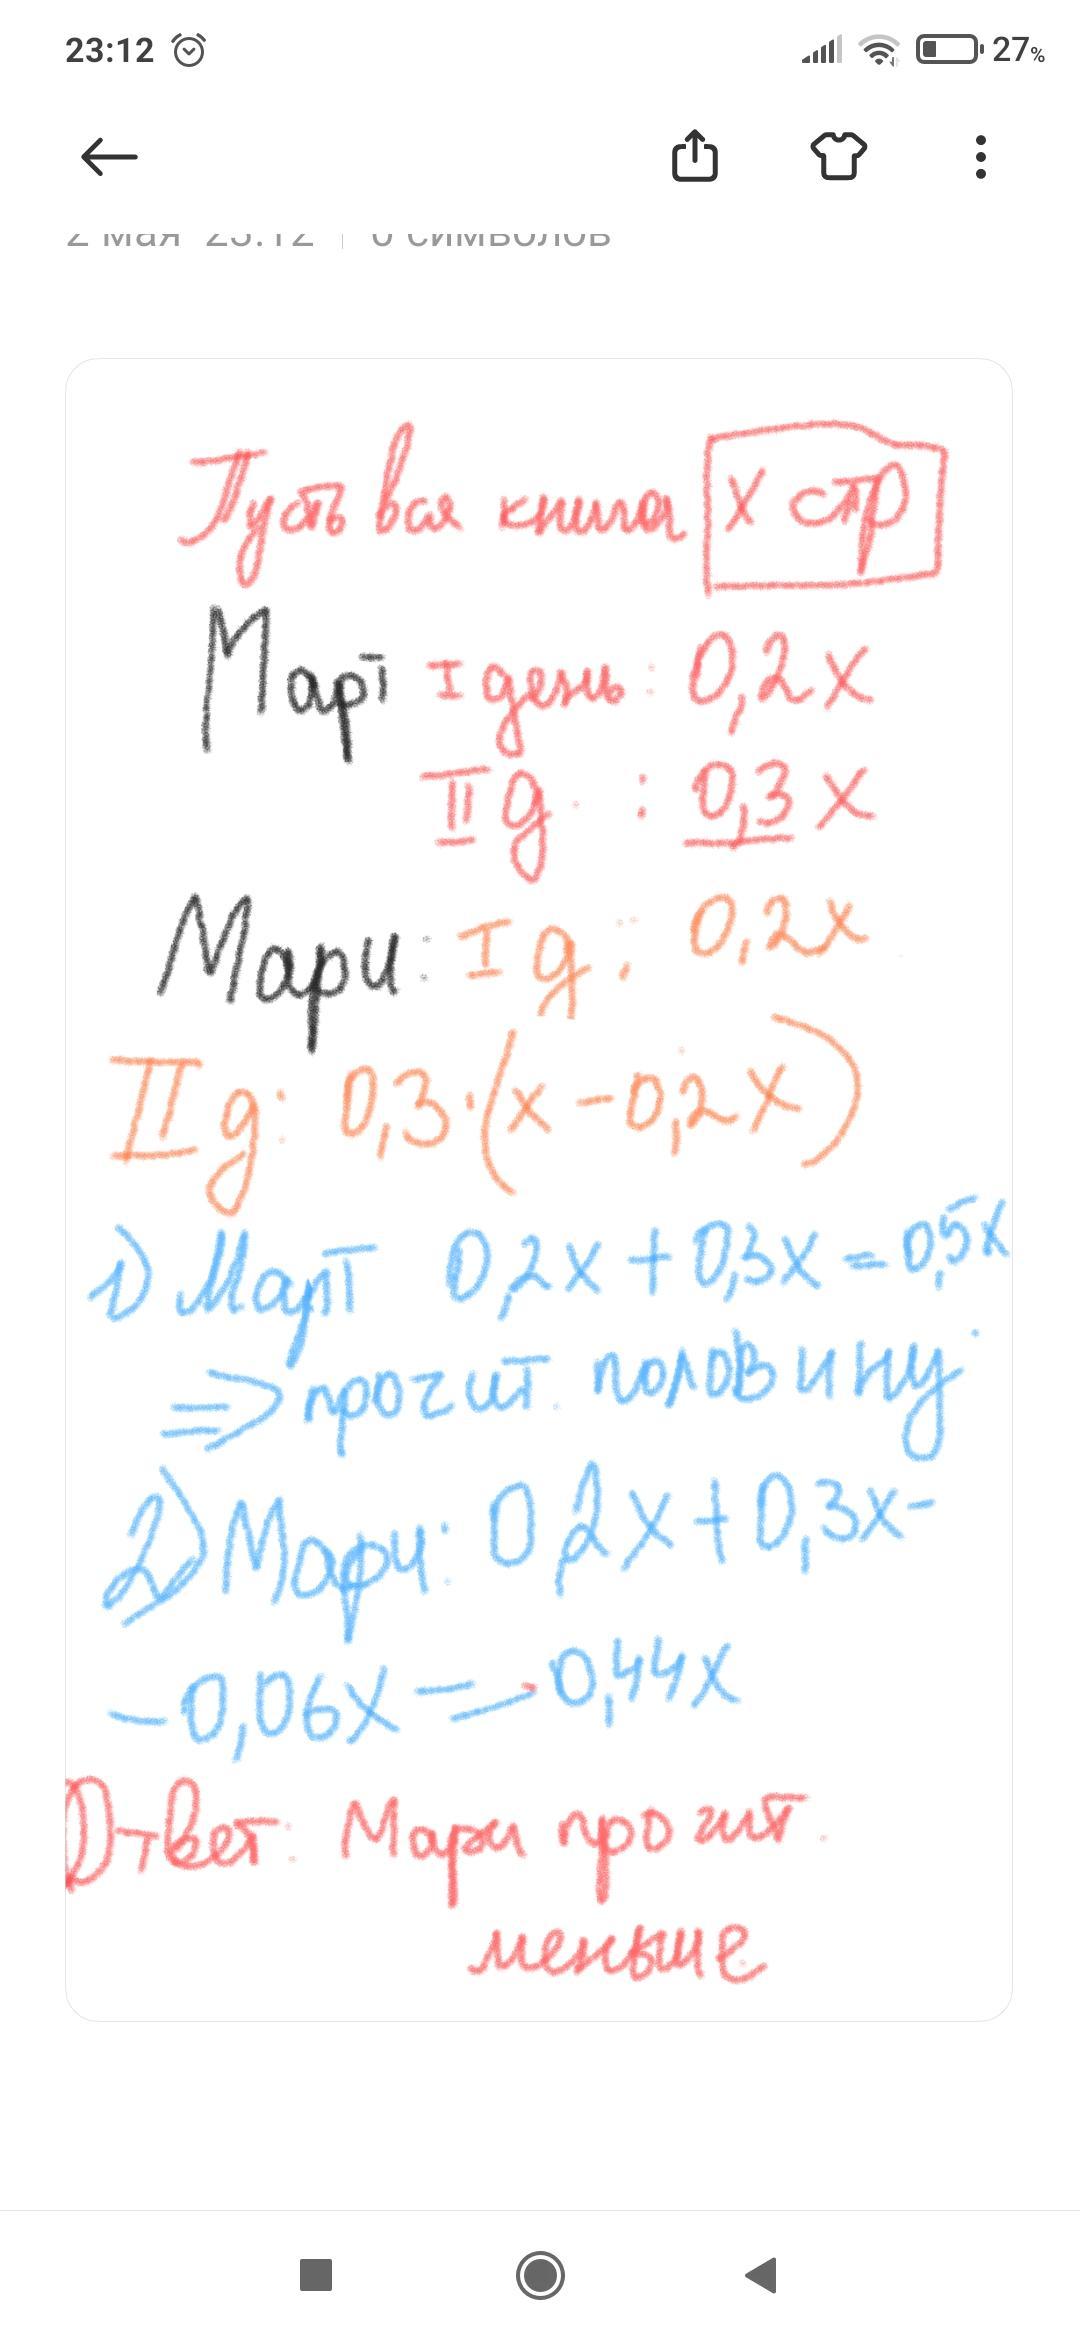 23:12 27%
2 мая 23:12 | 0 символов
Пусть вся книга x стр
Март I день: 0,2x
II д. : 0,3x
Мари: I д: 0,2x
II д: 0,3·(x-0,2x)
1) Март 0,2x+0,3x=0,5x
=> прочит. половину
2) Мари: 0,2x+0,3x-
-0,06x=0,44x
Ответ: Мари прочит.
меньше